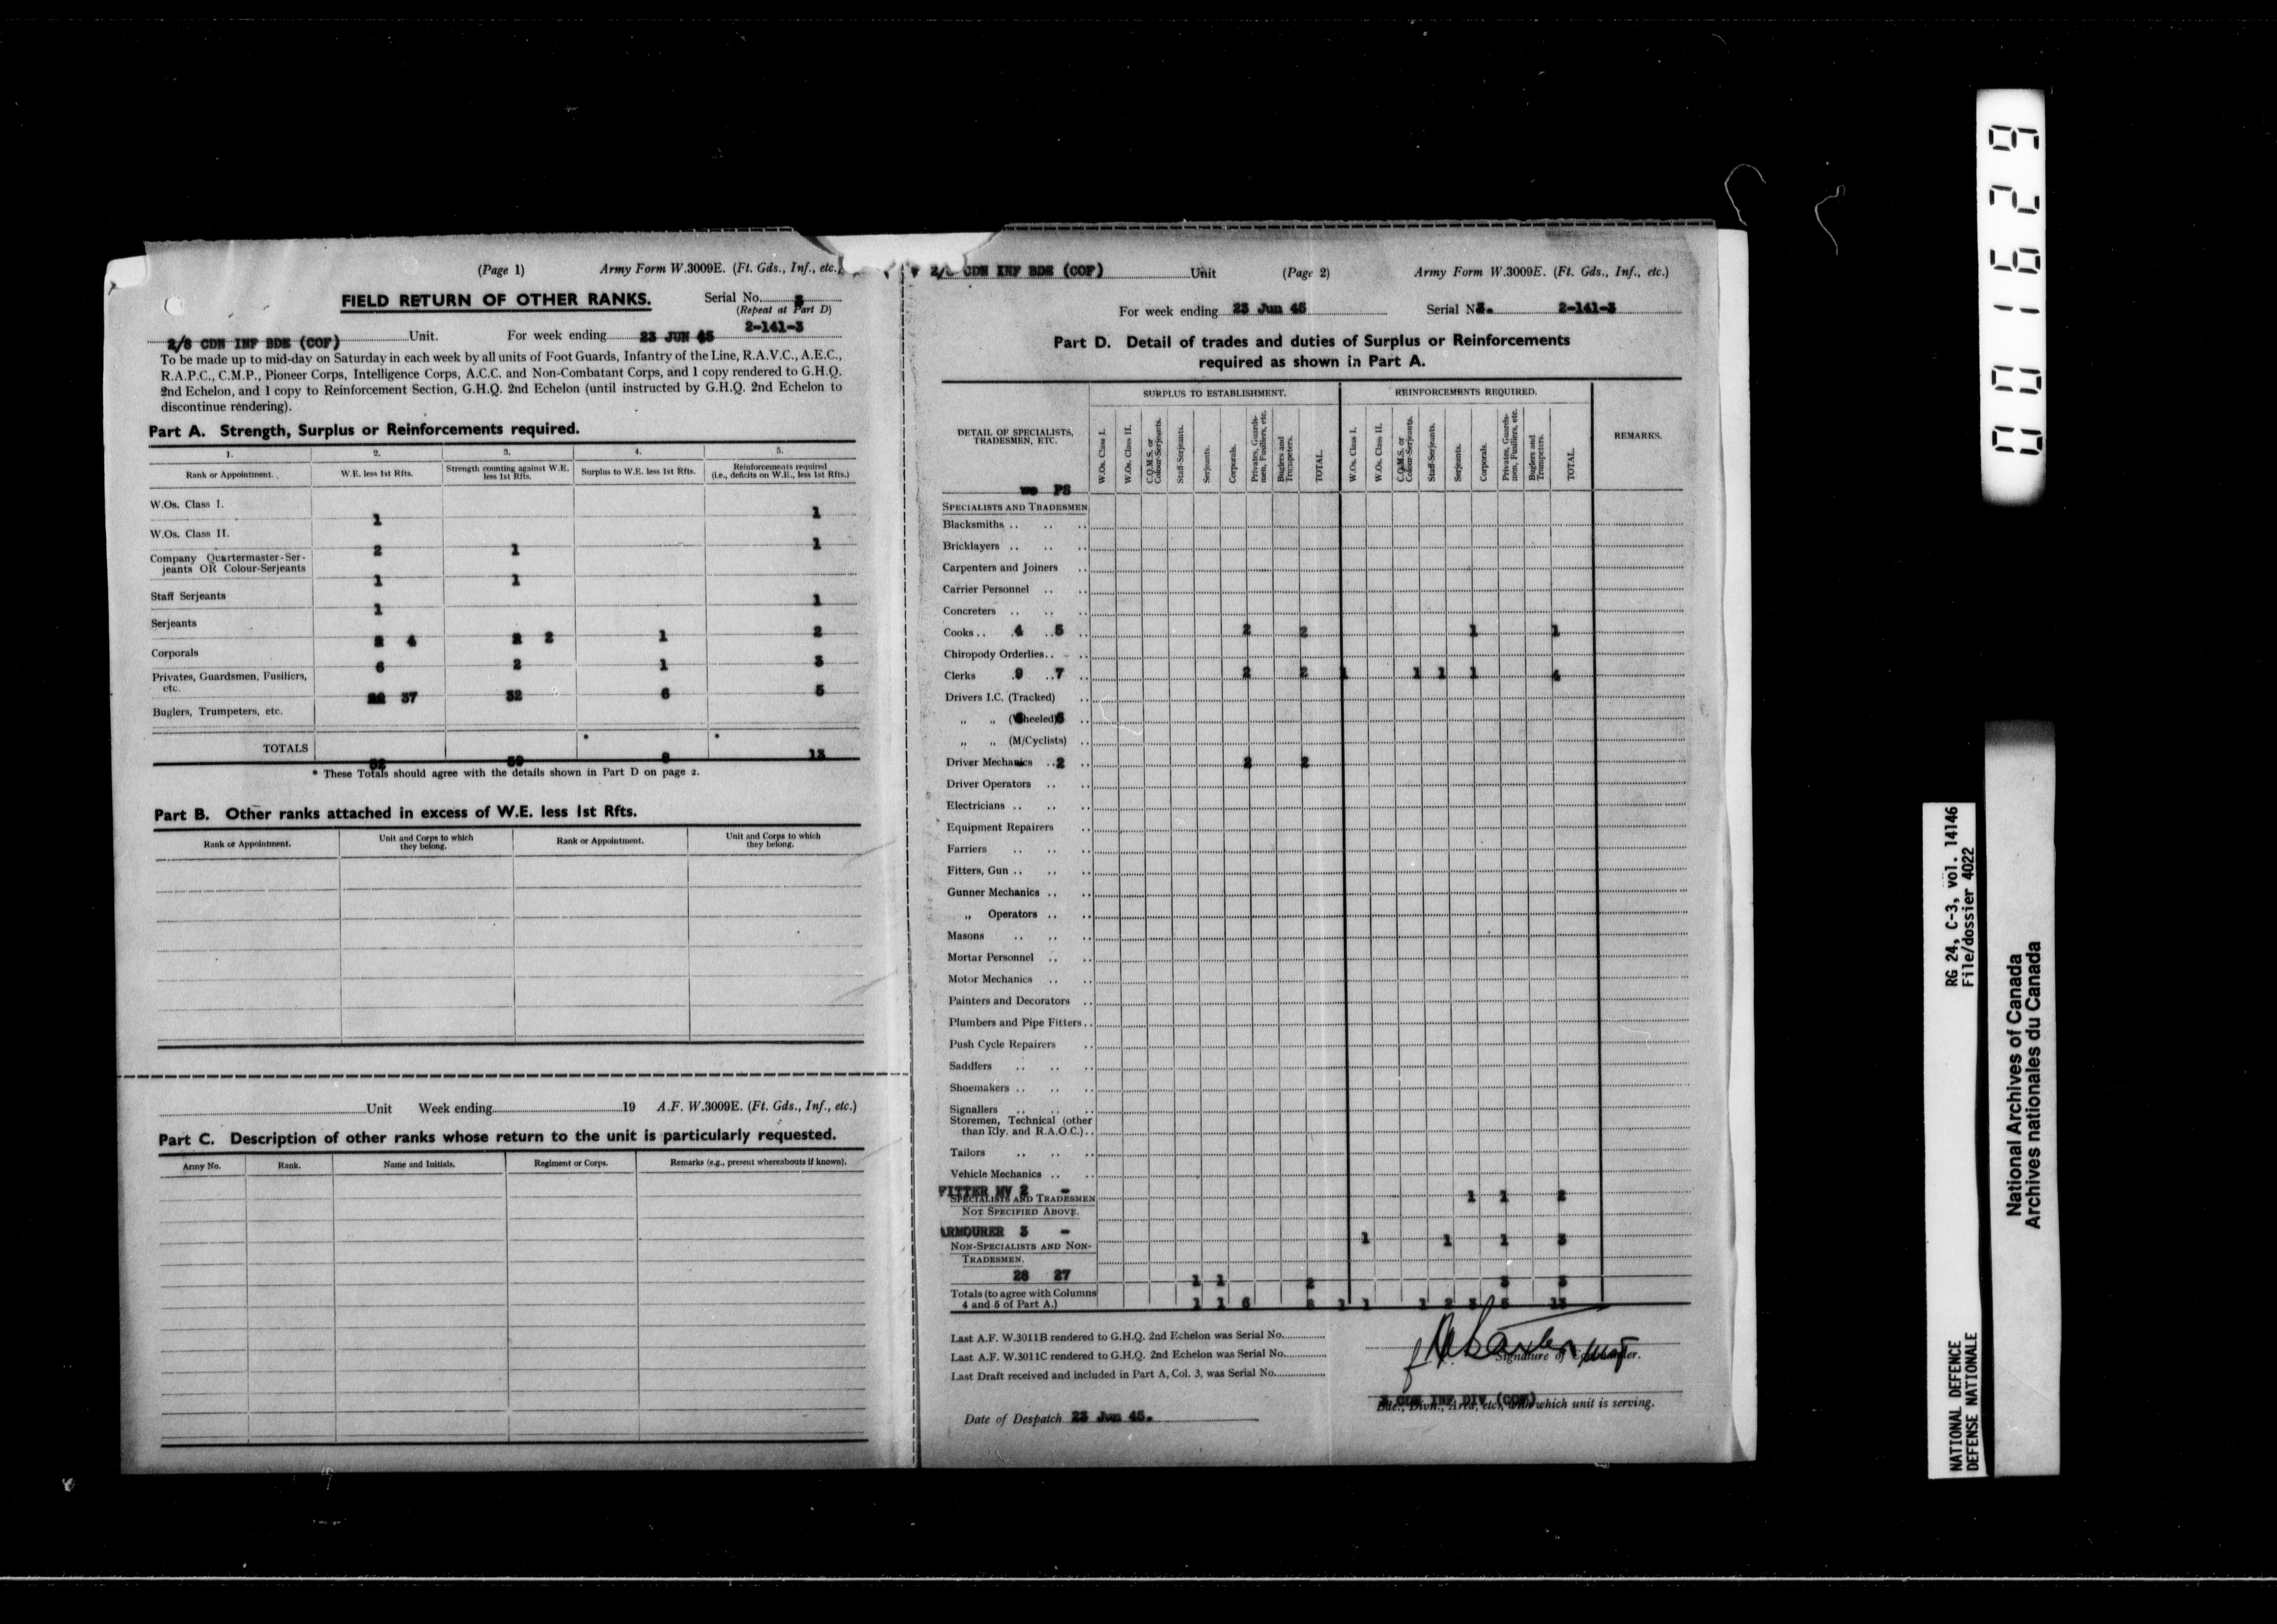 (Page 1) Army Form W.3009E. (Ft. Gds., Inf., etc.)
FIELD RETURN OF OTHER RANKS.
Serial No.
(Repeat at Part D)
2-141-3
2/8 CDN INF BDE (COF) Unit. For week ending 23 JUN 45
To be made up to mid-day on Saturday in each week by all units of Foot Guards, Infantry of the Line, R.A.V.C., A.E.C.,
R.A.P.C., C.M.P., Pioneer Corps, Intelligence Corps, A.C.C. and Non-Combatant Corps, and 1 copy rendered to G.H.Q.
2nd Echelon, and 1 copy to Reinforcement Section, G.H.Q. 2nd Echelon (until instructed by G.H.Q. 2nd Echelon to
discontinue rendering).
Part A. Strength, Surplus or Reinforcements required.
1. 2. 3. 4. 5.
Rank or Appointment. W.E. less 1st Rfts. Strength counting against W.E. less 1st Rfts. Surplus to W.E. less 1st Rfts. Reinforcements required (i.e., deficits on W.E., less 1st Rfts.)
W.Os. Class I. 1 1
W.Os. Class II. 2 1 1
Company Quartermaster-Ser-
jeants OR Colour-Serjeants 1 1
Staff Serjeants 1 1
Serjeants 4 2 1 2
Corporals 6 2 1 3
Privates, Guardsmen, Fusiliers,
etc. 37 32 6 5
Buglers, Trumpeters, etc.
TOTALS 52 8 13
* These Totals should agree with the details shown in Part D on page 2.
Part B. Other ranks attached in excess of W.E. less 1st Rfts.
Rank or Appointment. Unit and Corps to which they belong. Rank or Appointment. Unit and Corps to which they belong.
Unit Week ending 19 A.F. W.3009E. (Ft. Gds., Inf., etc.)
Part C. Description of other ranks whose return to the unit is particularly requested.
Army No. Rank. Name and Initials. Regiment or Corps. Remarks (e.g., present whereabouts if known).
2/8 CDN INF BDE (COF) Unit (Page 2) Army Form W.3009E. (Ft. Gds., Inf., etc.)
For week ending 23 Jun 45 Serial No. 2-141-3
Part D. Detail of trades and duties of Surplus or Reinforcements
required as shown in Part A.
SURPLUS TO ESTABLISHMENT. REINFORCEMENTS REQUIRED.
DETAIL OF SPECIALISTS, TRADESMEN, ETC.
W.Os. Class I. W.Os. Class II. C.Q.M.S. or Colour-Serjeants. Staff-Serjeants. Serjeants. Corporals. Privates, Guards-men, Fusiliers, etc. Buglers and Trumpeters. TOTAL.
W.Os. Class I. W.Os. Class II. C.Q.M.S. or Colour-Serjeants. Staff-Serjeants. Serjeants. Corporals. Privates, Guards-men, Fusiliers, etc. Buglers and Trumpeters. TOTAL.
REMARKS.
we PS
SPECIALISTS AND TRADESMEN
Blacksmiths
Bricklayers
Carpenters and Joiners
Carrier Personnel
Concreters
Cooks 4 5 2 2 1 1
Chiropody Orderlies
Clerks 9 7 2 2 1 1 1 1 4
Drivers I.C. (Tracked)
" " (Wheeled)
" " (M/Cyclists)
Driver Mechanics 2 2 2
Driver Operators
Electricians
Equipment Repairers
Farriers
Fitters, Gun
Gunner Mechanics
" Operators
Masons
Mortar Personnel
Motor Mechanics
Painters and Decorators
Plumbers and Pipe Fitters
Push Cycle Repairers
Saddlers
Shoemakers
Signallers
Storemen, Technical (other
than Rly. and R.A.O.C.)
Tailors
Vehicle Mechanics
FITTER MV 2 - 1 1 2
SPECIALISTS AND TRADESMEN
NOT SPECIFIED ABOVE.
ARMOURER 3 - 1 1 1 3
NON-SPECIALISTS AND NON-
TRADESMEN.
28 27 1 1 2 3 3
Totals (to agree with Columns
4 and 5 of Part A.) 1 1 6 8 1 1 1 2 3 5 13
Last A.F. W.3011B rendered to G.H.Q. 2nd Echelon was Serial No.
Last A.F. W.3011C rendered to G.H.Q. 2nd Echelon was Serial No.
Last Draft received and included in Part A, Col. 3, was Serial No.
Signature of Commander.
CDN INF DIV (COF)
Bde., Divn., Area, etc., with which unit is serving.
Date of Despatch 23 Jun 45.
001629
RG 24, C-3, vol. 14146
File/dossier 4022
NATIONAL DEFENCE
DEFENSE NATIONALE
National Archives of Canada
Archives nationales du Canada